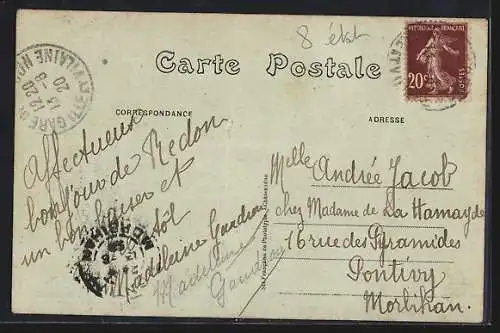 8 état
Carte Postale
REPUBLIQUE FRANÇAISE
20c
POSTES
GARE D'
ILLE-ET-VILAINE
12 20
13 -8
20
CORRESPONDANCE
ADRESSE
Affectueux
bonjour de Redon
un bon baiser et
Madeleine Gaudin
Madeleine
Gaudin
MORBIHAN
Melle Andrée Jacob
chez Madame de La Hamayde
16 rue des Pyramides
Pontivy
Morbihan